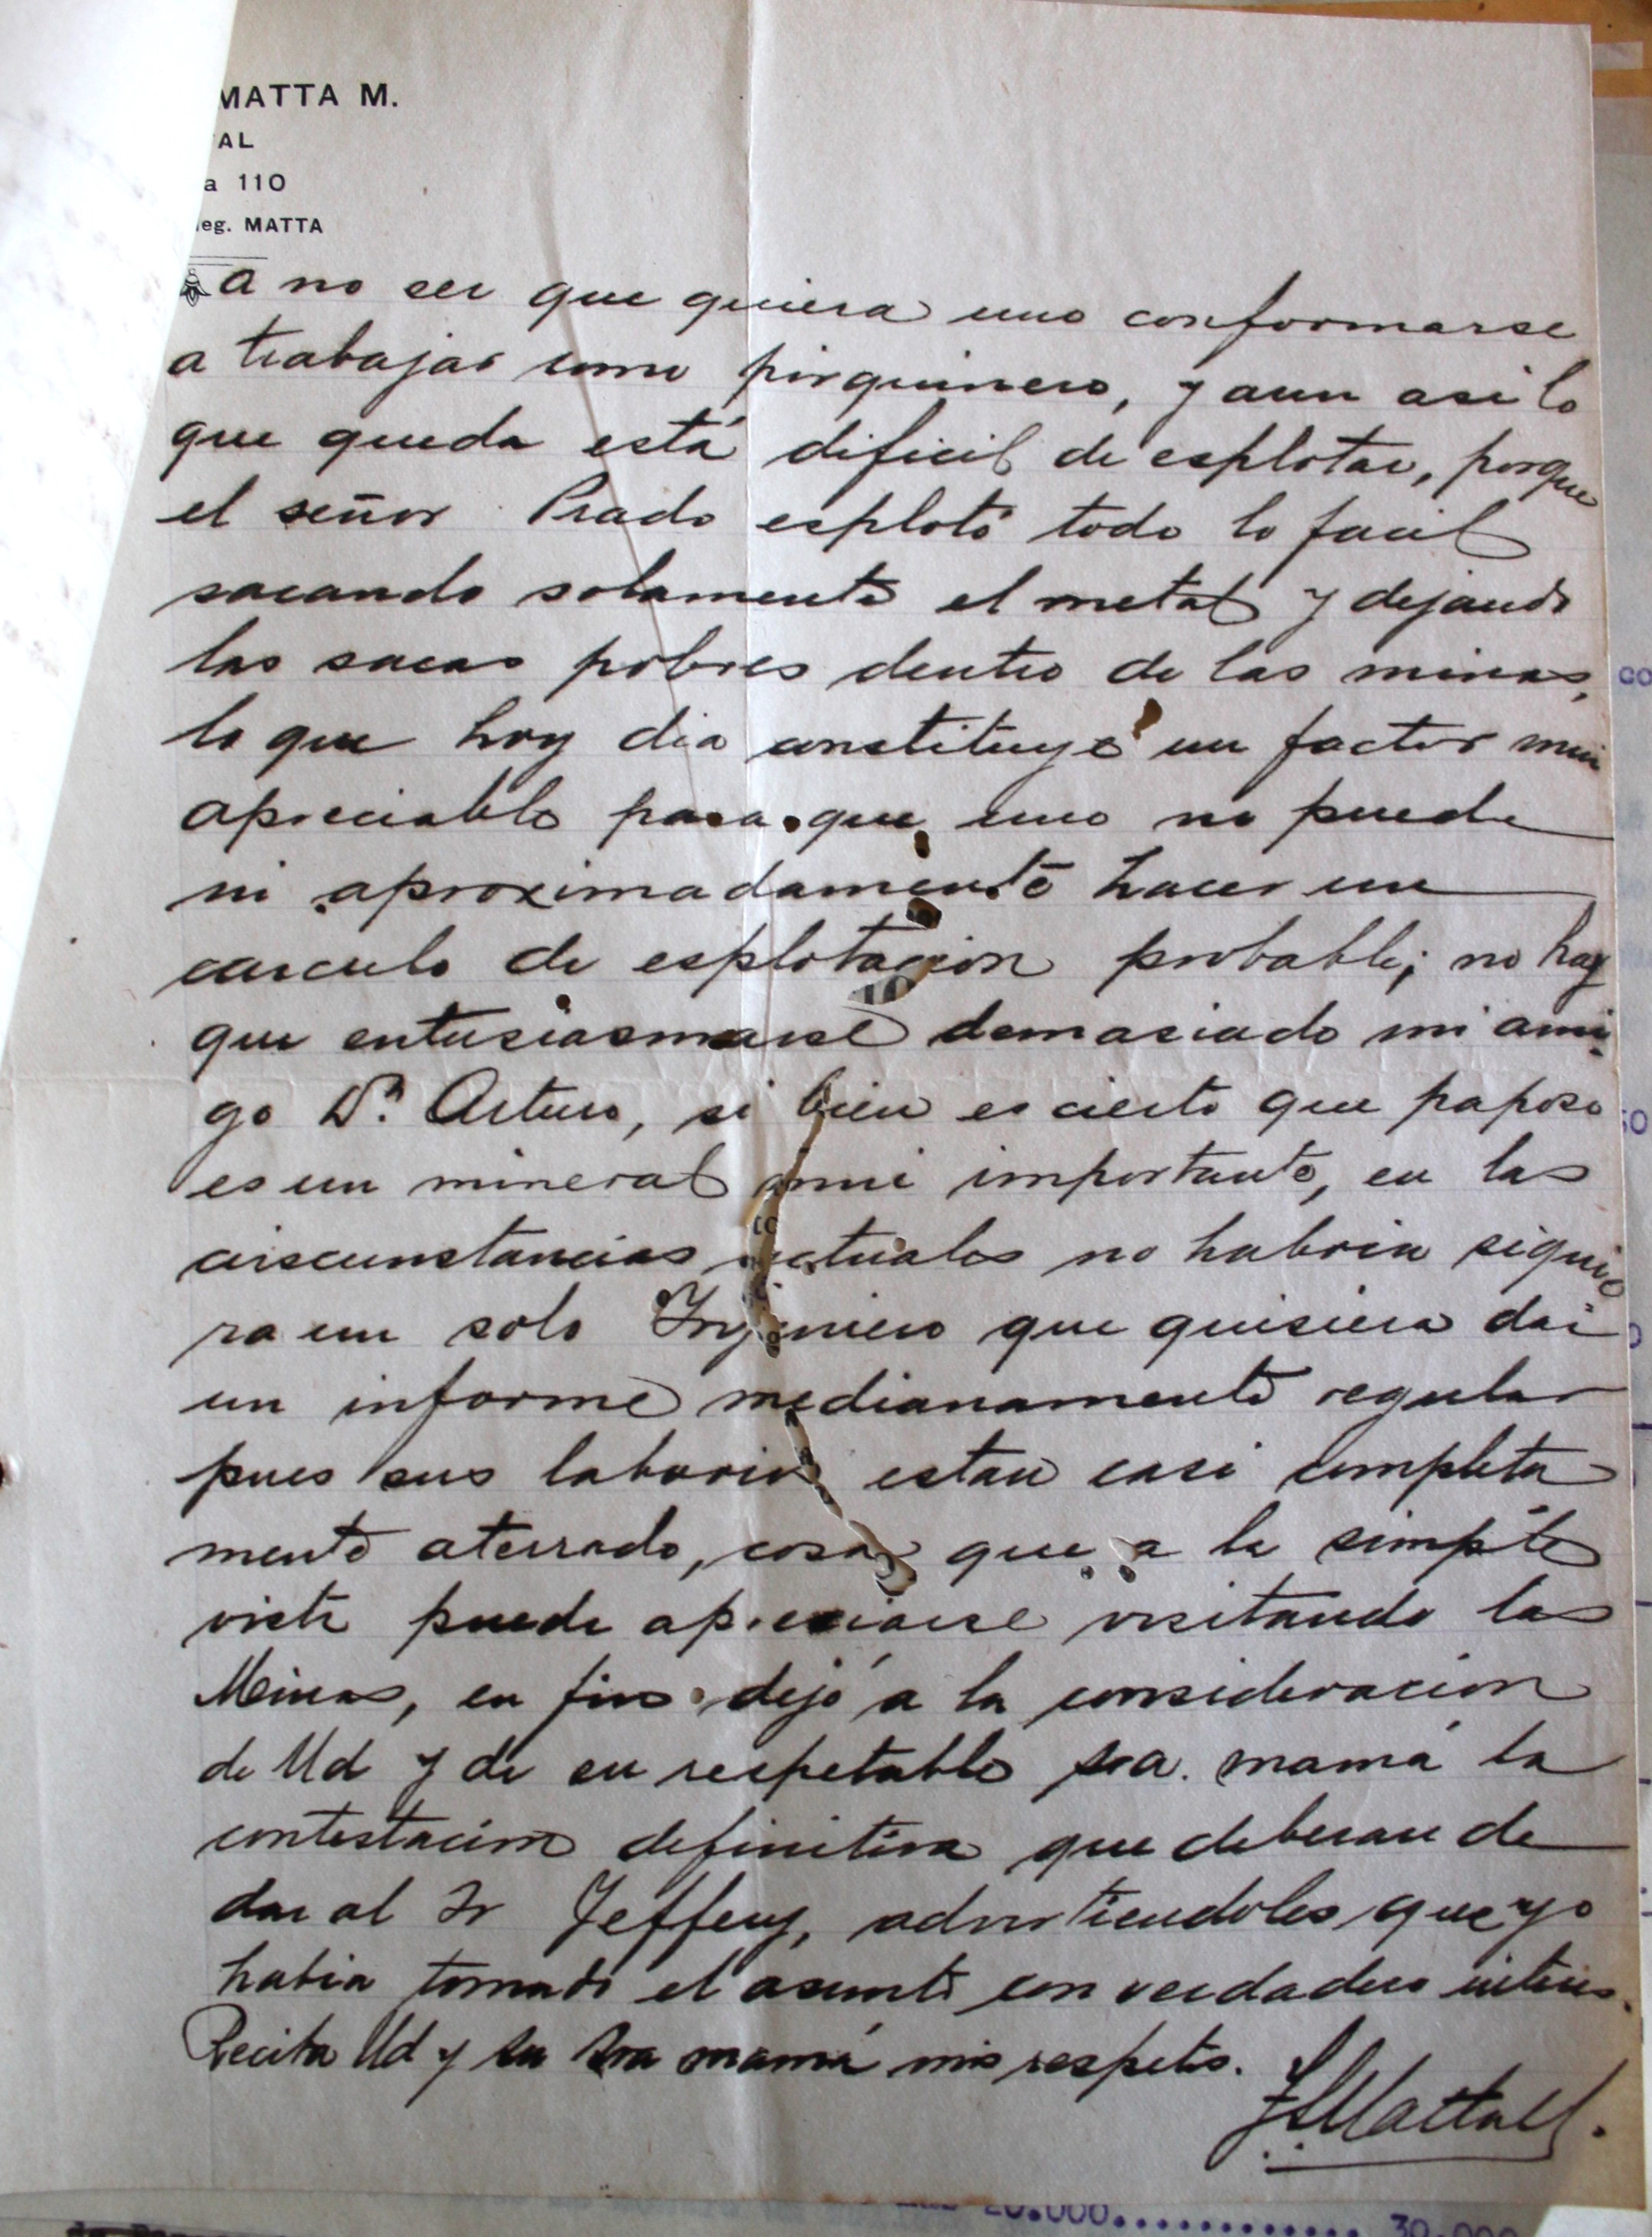 MATTA M.
AL
a 110
eg. MATTA
a no ser que quiera uno conformarse
a trabajar como pirquinero, y aun asi lo
que queda está dificil de esplotar, porque
el señor Prado esplotó todo lo facil
sacando solamente el metal y dejando
las sacas pobres dentro de las minas,
lo que hoy dia constituye un factor mui
apreciable para que uno no puede
ni aproximadamente hacer un
carculo de esplotacion probable; no hay
que entusiasmarse demasiado mi ami-
go Dn. Arturo, si bien es cierto que paposo
es un mineral mui importante, en las
circunstancias actuales no habria siquie
ra un solo Injeniero que quisiera dar
un informe medianamente regular
pues sus labores estan casi completa
mente aterrado, cosa que a la simple
vista puede apreciarse visitando las
Minas, en fin dejó a la consideracion
de Ud y de su respetable sra. mamá la
contestacion definitiva que deberan de
dar al Sr Jeffery, advirtiendoles que yo
habia tomado el asunto con verdadero interes.
Reciba Ud y su Sra mamá mis respetos.
MattaM.
co
50
20.000............ 30.000